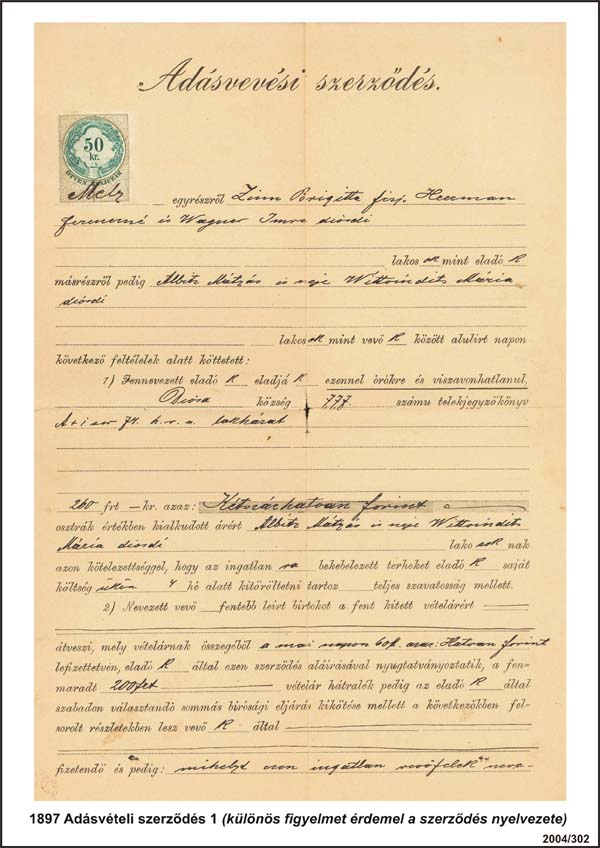 Adásvevési szerződés.
50
kr.
ÖTVEN KRAJCZÁR
egyrészről Zinn Brigitta férj. Herrman
Ferenczné és Wagner Imre diósdi
lakos ok mint eladó k
másrészről pedig Albitz Mátyás és neje Wittvindits Mária
diósdi
lakos ok mint vevő k között alulirt napon
következő feltételek alatt köttetett:
1) Fennevezett eladó k eladjá k ezennel örökre és viszavonhatlanul,
Diósd község 778. számu telekjegyzőkönyv
A + 1 sor 74. h. r. sz. lakházat
260 frt — kr. azaz: Kétszázhatvan forint
osztrák értékben kialkudott árért Albitz Mátyás és neje Wittvindits
Mária diósdi
lako sok nak
azon kötelezettséggel, hogy az ingatlan ra bekebelezett terheket eladó k saját
költség ükön 4 hó alatt kitöröltetni tartoz teljes szavatosság mellett.
2) Nevezett vevő fentebb leirt birtokot a fent kitett vételárért
átveszi, mely vételárnak összegéből a mai napon 60 ft. azaz: Hatvan forint
lefizettetvén, eladó k által ezen szerződés aláirásával nyugtatványoztatik, a fen-
maradt 200 frt vételár hátralék pedig az eladó k által
szabadon választandó sommás birósági eljárás kikötése mellett a következőkben fel-
sorolt részletekben lesz vevő k által
fizetendő és pedig: mihelyt ezen ingatlan vevőfelek neve-
1897 Adásvételi szerződés 1 (különös figyelmet érdemel a szerződés nyelvezete)
2004/302